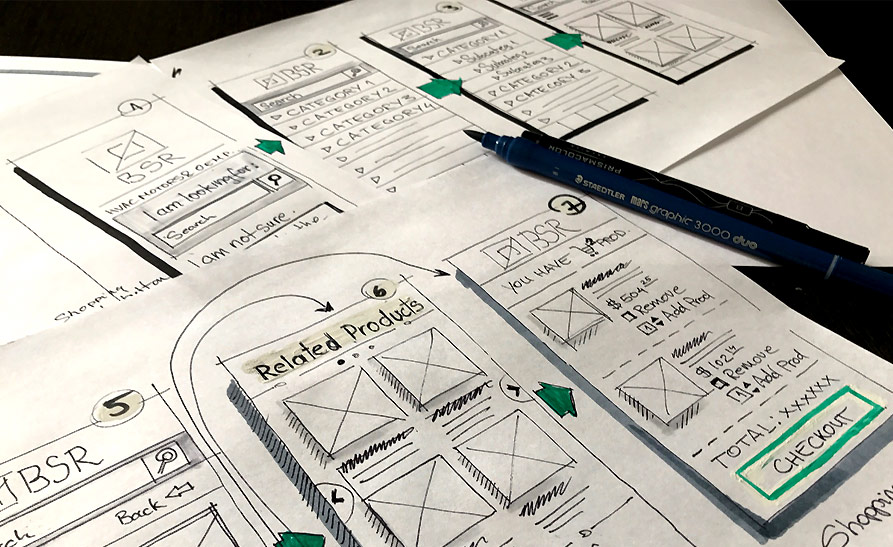 1
BSR
I am looking for:
Search
i am not sure.
Shopping
2
BSR
Search
CATEGORY 1
CATEGORY 2
CATEGORY 3
CATEGORY 4
3
Search
CATEGORY 1
Subcateg 1
Subcateg 2
Subcateg 3
CATEGORY 2
CATEGORY 3
Search
PRISMACOLOR
STAEDTLER mars graphic 3000 duo
5
BSR
Back
6
Related Products
7
BSR
YOU HAVE 2 PROD.
$ 504.25
Remove
Add Prod
$ 102.14
Remove
Add Prod
TOTAL: XXXXXX
CHECKOUT